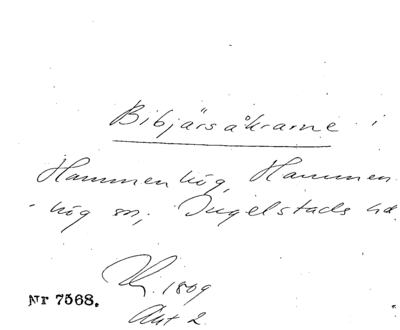 Bibjärsåkrarne i
Hammenhög, Hammen-
hög sn, Ingelstads hd
1809
Nr 7568.
Akt 2